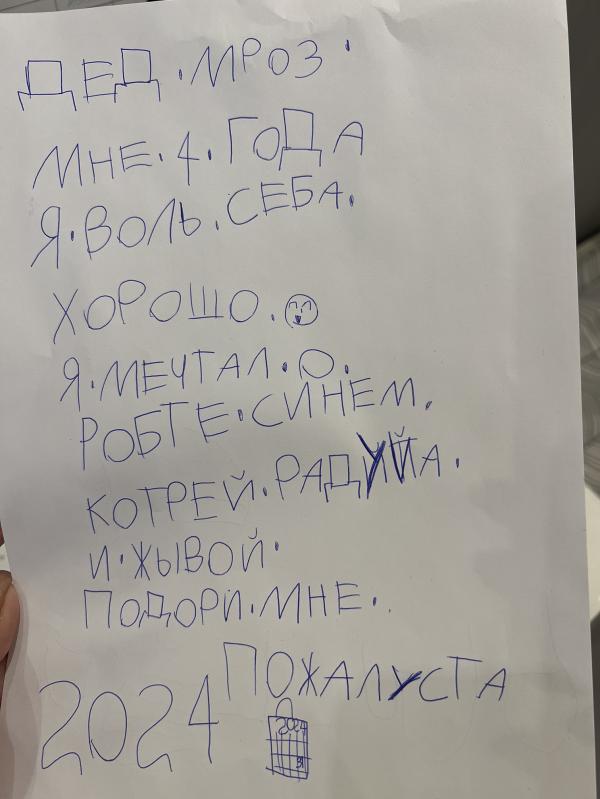 ДЕД·МРОЗ·
МНЕ·4·ГОДА
Я·ВОЛЬ.СЕБА.
ХОРОШО.
Я·МЕЧТАЛ.О.
РОБТЕ·СИНЕМ.
КОТРЕЙ.РАДУЙА.
И·ЖЫВОЙ·
ПОДОРИ·МНЕ·.
ПОЖАЛУСТА
2024
2024
31